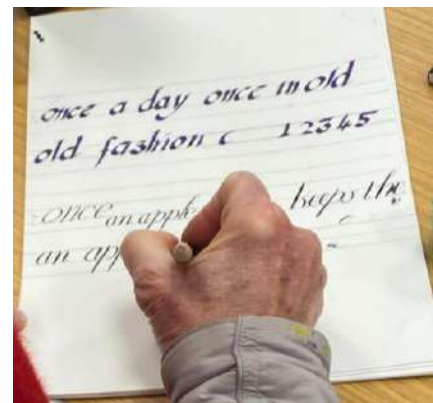 once a day once in old
old fashion c 12345
once an apple keeps the
an app